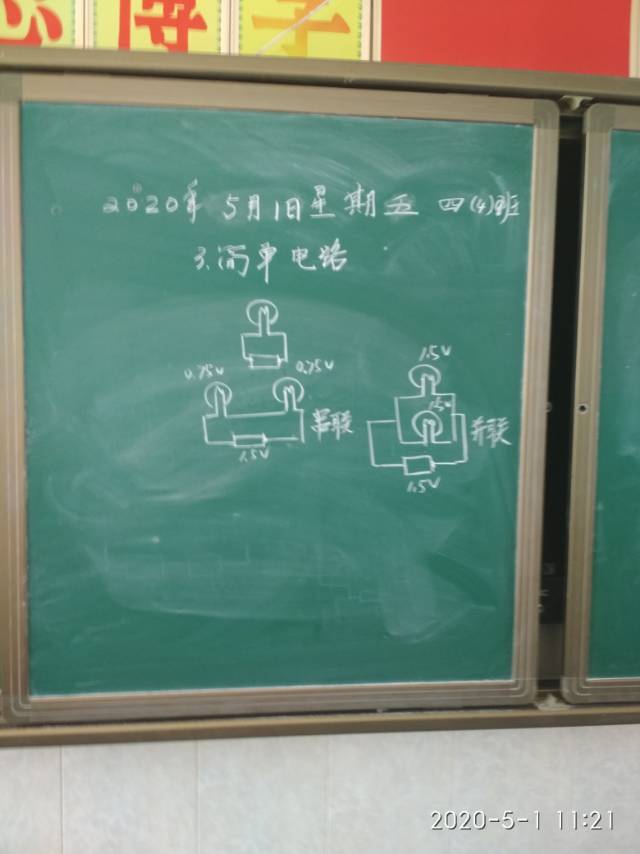 博学
2020年 5月1日星期五 四(4)班
3.简单电路
0.75V 0.75V
1.5V
串联
1.5V
1.5V
并联
1.5V
2020-5-1 11:21